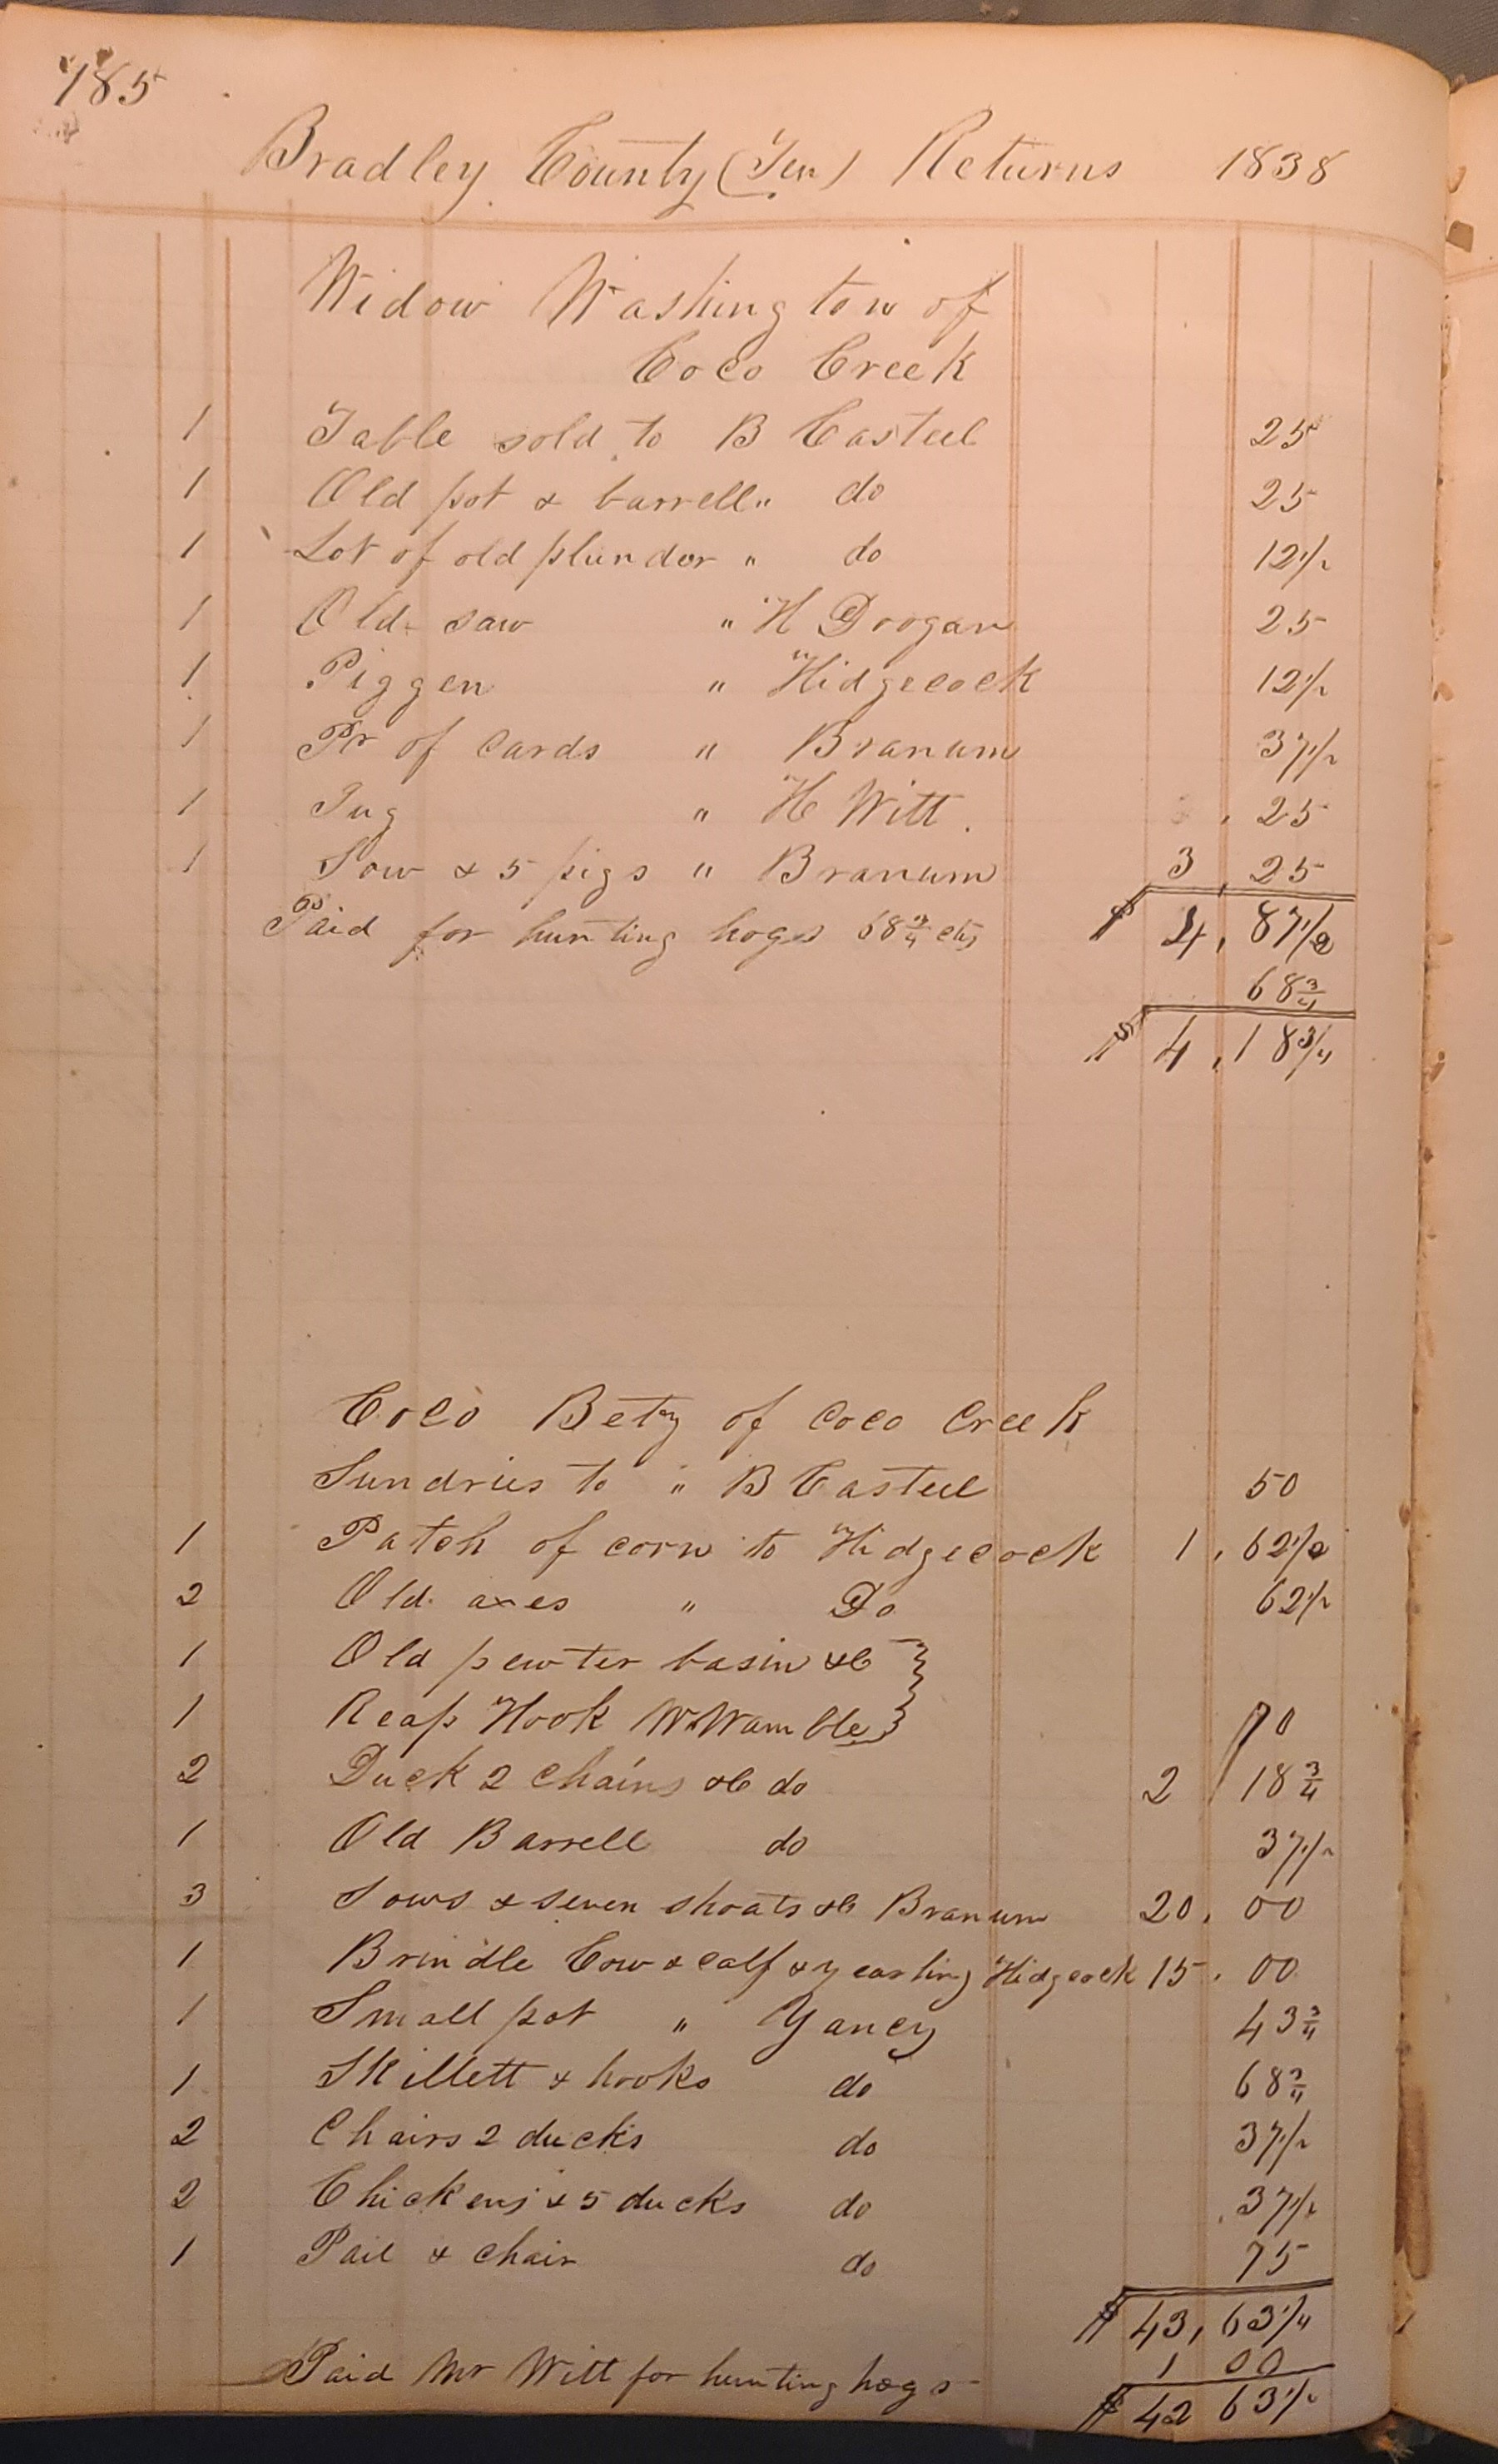 785
Bradley County (Ten) Returns 1838
Widow Washington of
Coco Creek
1 Table sold to B Casteel 25
1 Old pot & barrell " do 25
1 Lot of old plunder " do 12 1/2
1 Old saw " H Doogan 25
1 Piggen " Hidgecock 12 1/2
1 Pr of Cards " Branum 37 1/2
1 Jug " H Witt . 25
1 Sow & 5 pigs " Branum 3, 25
Paid for hunting hogs 68 3/4 cts $ 4, 87 1/2
68 3/4
$ 4, 18 3/4
Coco Bety of Coco Creek
Sundries to " B Casteel 50
1 Patch of corn to Hidgecock 1, 62 1/2
2 Old axes " Do 62 1/2
1 Old pewter basin &c }
1 Reap Hook W Wamble } 70
2 Duck 2 Chains &c do 2 18 3/4
1 Old Barrell do 37 1/2
3 Sows & seven shoats &c Branum 20, 00
1 Brindle Cow & calf & yearling Hidgcock 15, 00
1 Small pot " Yancy 43 3/4
1 Skillett & hooks do 68 3/4
2 Chairs 2 ducks do 37 1/2
2 Chickens & 5 ducks do 37 1/2
1 Pail & Chair do 75
$ 43, 63 1/4
Paid Mr Witt for hunting hogs 1 00
$ 42 63 1/2